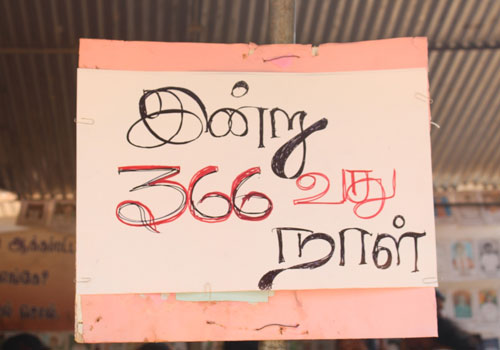 இன்று
366 வது
நாள்